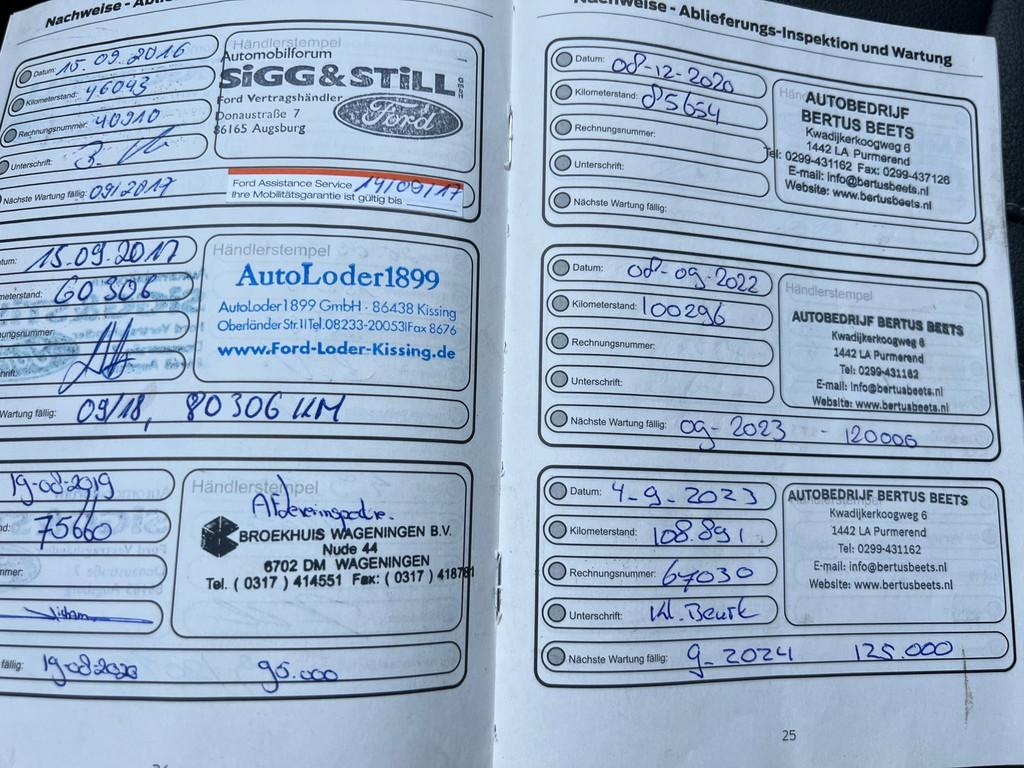 Nachweise - Ablie
Datum: 15.09.2016
Kilometerstand: 46043
Rechnungsnummer: 40910
Unterschrift:
Nächste Wartung fällig: 09/2017
Händlerstempel
Automobilforum
SiGG & STiLL GmbH
Ford Vertragshändler
Donaustraße 7
86165 Augsburg
Ford
Ford Assistance Service 14/09/17
Ihre Mobilitätsgarantie ist gültig bis
tum: 15.09.2017
meterstand: 60306
ungsnummer:
hrift:
Wartung fällig: 09/18, 80306 KM
Händlerstempel
AutoLoder1899
AutoLoder1899 GmbH · 86438 Kissing
Oberländer Str.11Tel.08233-20053|Fax 8676
www.Ford-Loder-Kissing.de
19-08-2019
nd: 75660
mmer:
fällig: 19-08-2020 95.000
Händlerstempel
Afleverinspectie.
BROEKHUIS WAGENINGEN B.V.
Nude 44
6702 DM WAGENINGEN
Tel. ( 0317 ) 414551 Fax: ( 0317 ) 418781
Nachweise - Ablieferungs-Inspektion und Wartung
Datum: 08-12-2020
Kilometerstand: 85654
Rechnungsnummer:
Unterschrift:
Nächste Wartung fällig:
Hän
AUTOBEDRIJF
BERTUS BEETS
Kwadijkerkoogweg 6
1442 LA Purmerend
Tel: 0299-431162 Fax: 0299-437126
E-mail: info@bertusbeets.nl
Website: www.bertusbeets.nl
Datum: 08-09-2022
Kilometerstand: 100296
Rechnungsnummer:
Unterschrift:
Nächste Wartung fällig: 09-2023 - 120000
Händlerstempel
AUTOBEDRIJF BERTUS BEETS
Kwadijkerkoogweg 6
1442 LA Purmerend
Tel: 0299-431162
E-mail: info@bertusbeets.nl
Website: www.bertusbeets.nl
Datum: 4-9-2023
Kilometerstand: 108.891
Rechnungsnummer: 67030
Unterschrift: Kl. Beurt
Nächste Wartung fällig: 9-2024 125.000
AUTOBEDRIJF BERTUS BEETS
Kwadijkerkoogweg 6
1442 LA Purmerend
Tel: 0299-431162
E-mail: info@bertusbeets.nl
Website: www.bertusbeets.nl
25